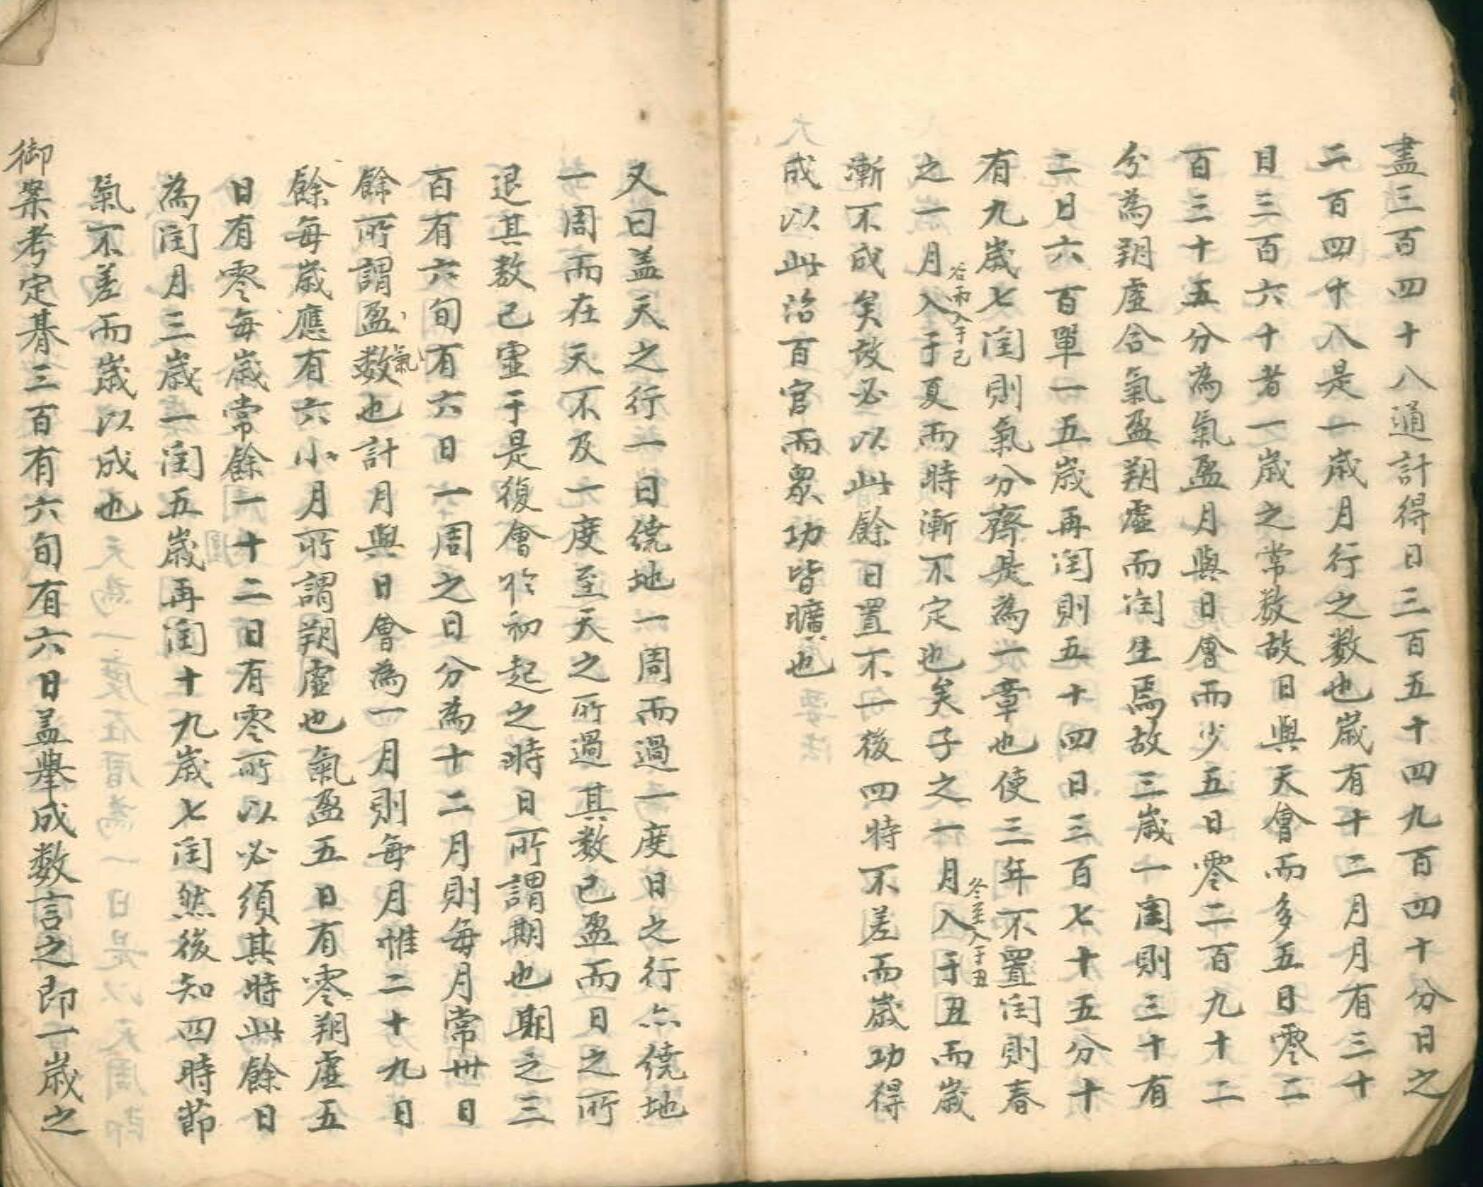 盡三百四十八通計得日三百五十四九百四十分日之
二百四十八是一歲月行之数也歲有十二月月有三十
日三百六十者一歲之常数故日與天會而多五日零二
百三十五分為氣盈月與日會而少五日零二百九十二
分為朔虛合氣盈朔虛而閏生焉故三歲一閏則三十有
二日六百單一五歲再閏則五十四日三百七十五分十
有九歲七閏則氣分齊是為一章也使三年不置閏則春
之一月入于夏而時漸不定也矣子之一月入于丑而歲
谷雨入于巳
冬至入于丑
漸不成矣故必以此餘日置不一後四時不差而歲功得
成以此治百官而衆功皆曠也
又曰盖天之行一日繞地一周而過一度日之行亦繞地
一周而在天不及一度至天之所過其数已盈而日之所
退其数已虛于是復會於初起之時日所謂期也期之三
百有六旬有六日一周之日分為十二月則每月常卅日
餘所謂氣盈数也計月與日會為一月則每月惟二十九日
餘每歲應有六小月所謂朔虛也氣盈五日有零朔虛五
日有零每歲常餘一十二日有零所以必須其時此餘日
為閏月三歲一閏五歲再閏十九歲七閏然後知四時節
氣不差而歲以成也
御案考定朞三百有六旬有六日盖舉成數言之即一歲之